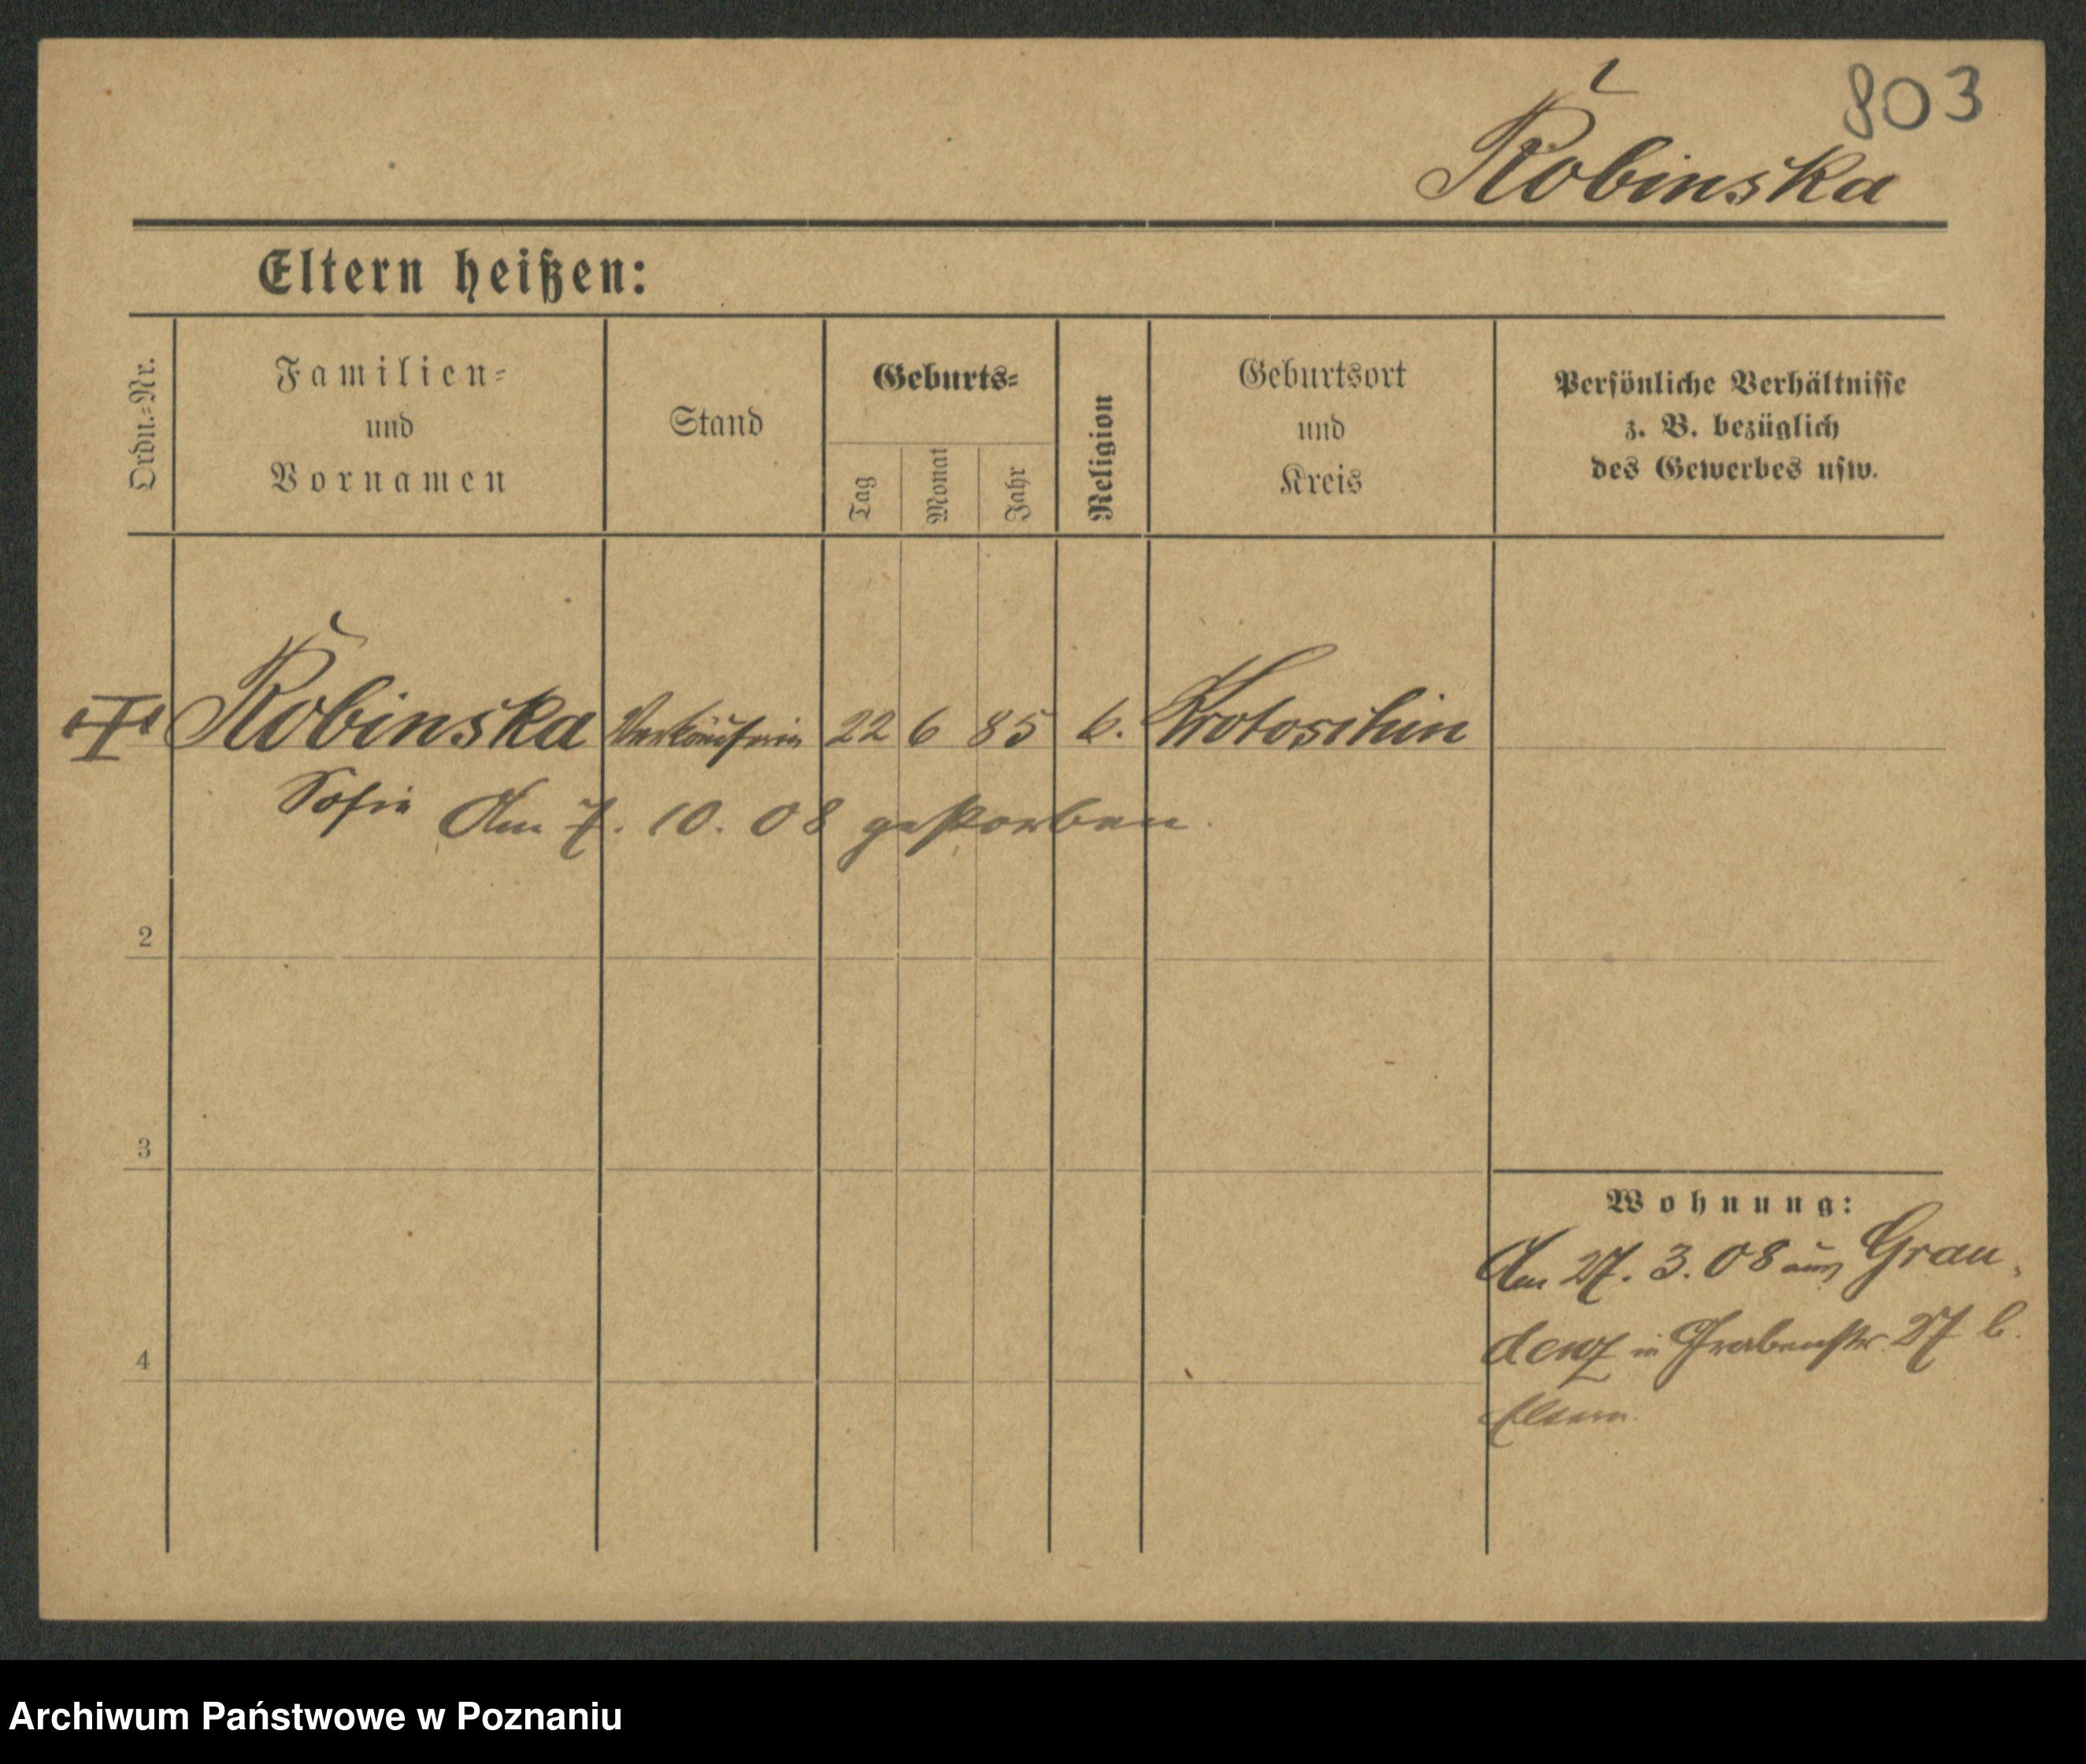 803
Robinska
Eltern heißen:
Ordn.-Nr.
Familien-
und
Vornamen
Stand
Geburts-
Tag
Monat
Jahr
Religion
Geburtsort
und
Kreis
Persönliche Verhältnisse
z. B. bezüglich
des Gewerbes usw.
Robinska Verkäuferin 22 6 85 k. Krotoschin
Sofie Am 7. 10. 08 gestorben.
2
3
Wohnung:
Am 27. 3. 08 aus Grau-
denz in Grabenstr 27 b.
4
Eltern.
Archiwum Państwowe w Poznaniu